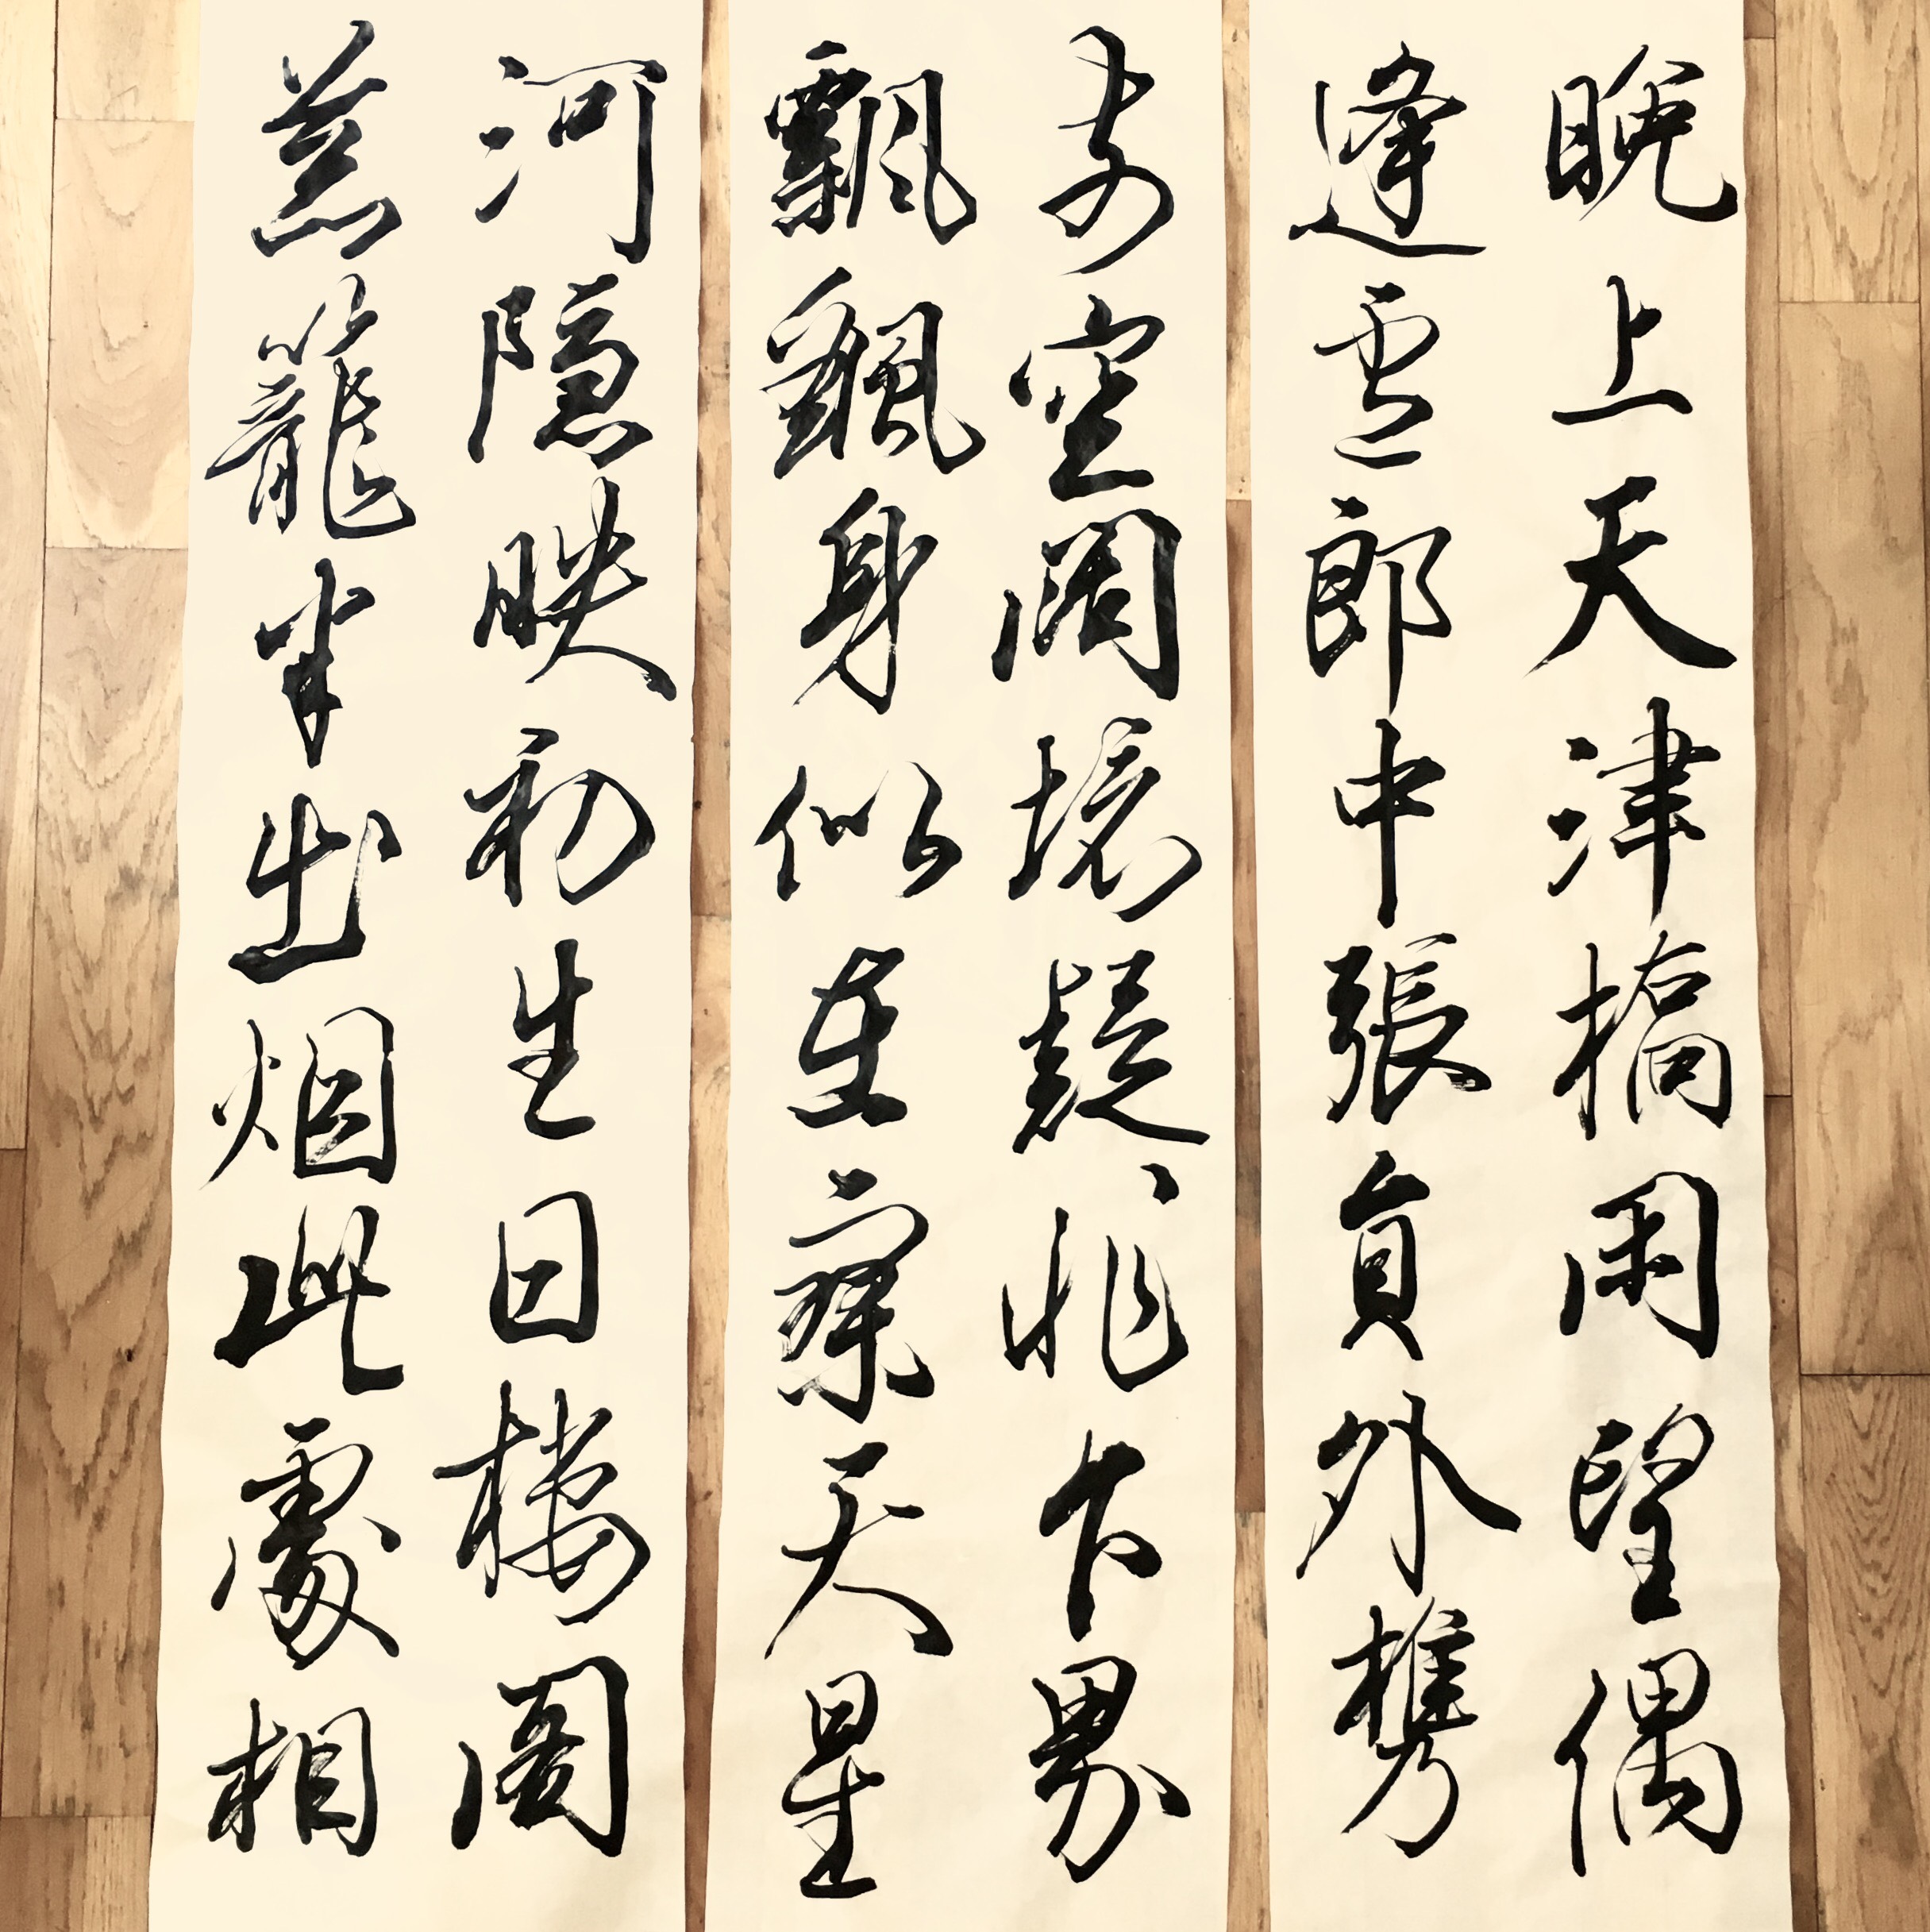 晚上天津橋閑望偶
逢盧郎中張員外携
前空闊境疑非下界
飄颻身似在寥天星
河隱映初生日樓閣
葱籠半出烟此處相